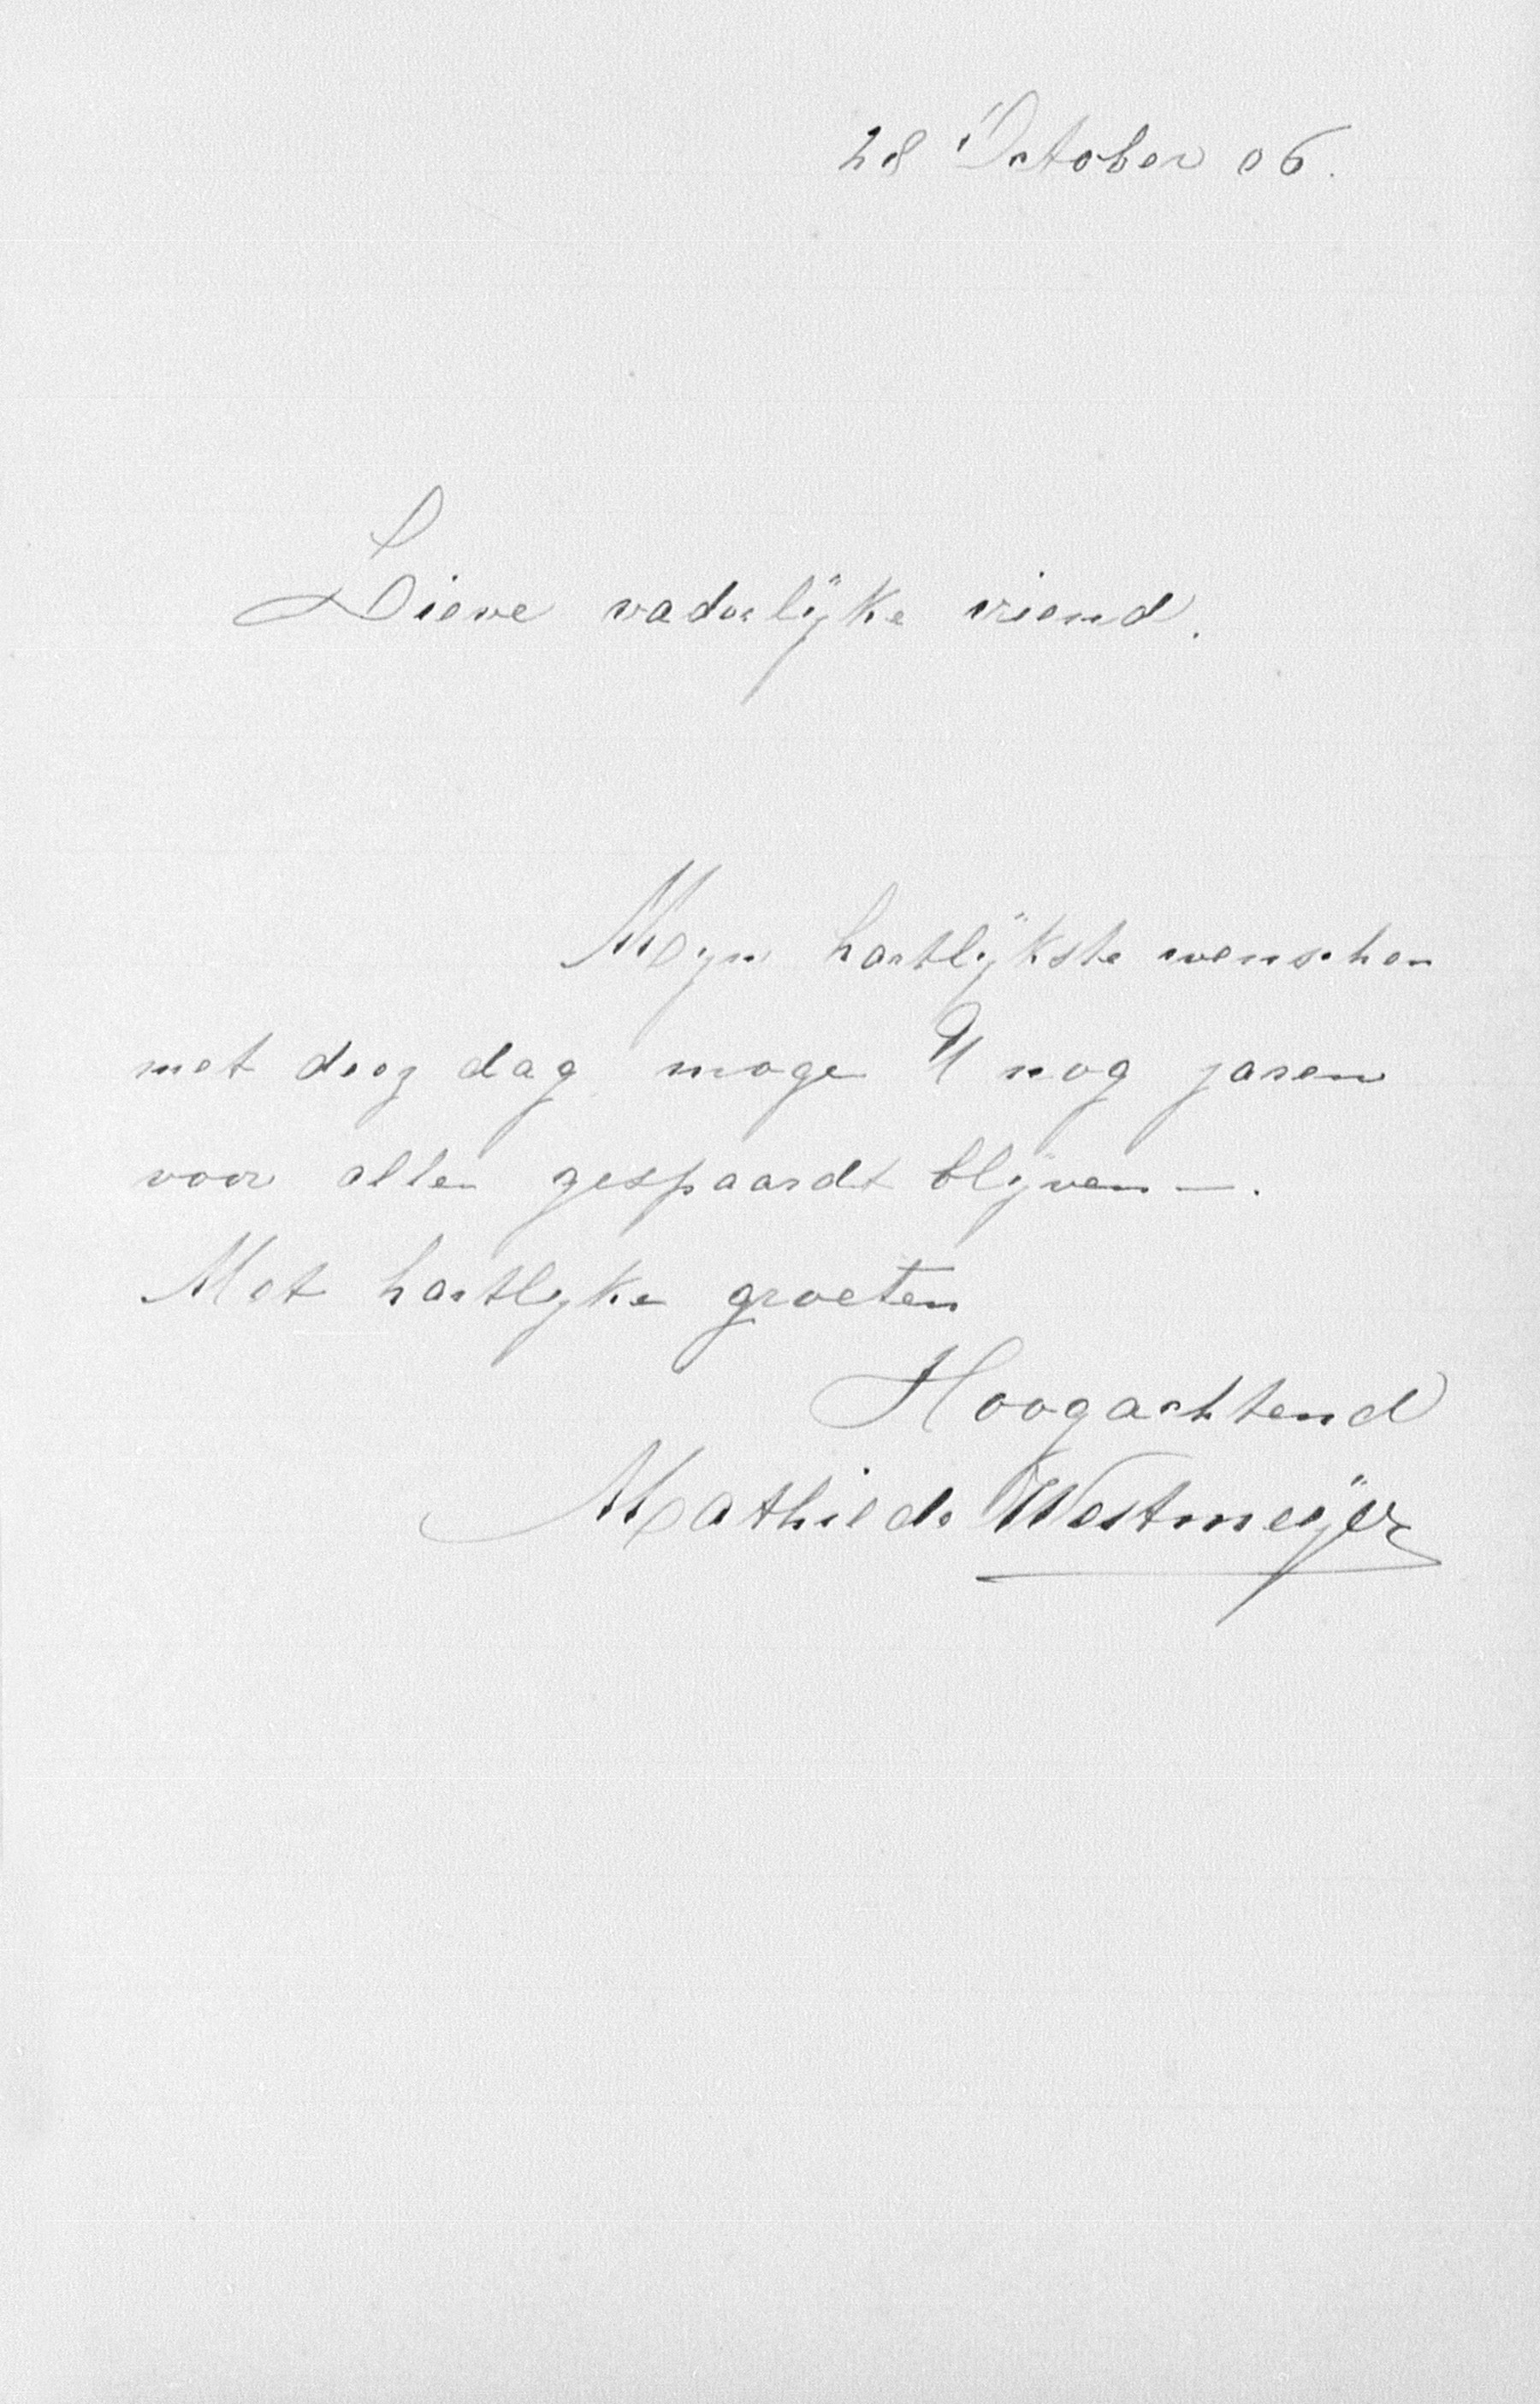 28 October 06.
Lieve vaderlijke vriend.
Mijn hartlijkste wenschen
met deez dag moge U nog jaren
voor allen gespaardt blijven —.
Met hartlijke groeten
Hoogachtend
Mathilde Westmeijer